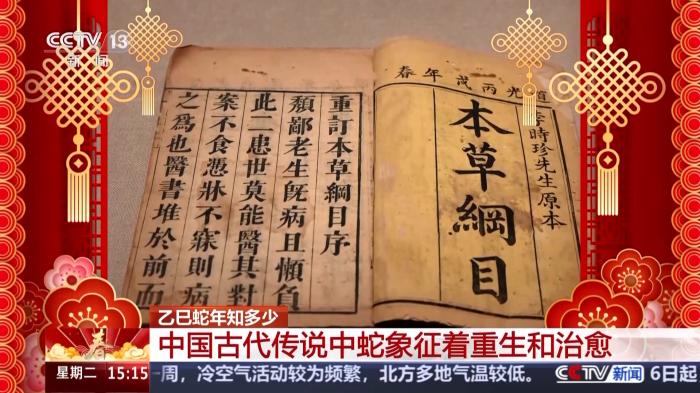 CCTV 13
新闻
道光丙戌年春
李時珍先生原本
本草綱目
重訂本草綱目序
頹鄙老生旣病且懶負
此二患世莫能醫其對
案不食憑牀不寐則病
之爲也醫書堆於前而
乙巳蛇年知多少
中国古代传说中蛇象征着重生和治愈
春
星期二 15:15 一周，冷空气活动较为频繁，北方多地气温较低。 CCTV新闻 6日起